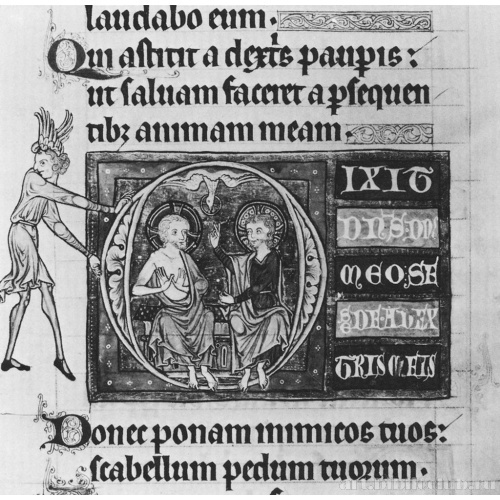 laudabo eum.
Qui astitit a dextꝭ paupis:
ut saluam faceret a psequen
tibꝫ animam meam.
IXIT
DNS DNO
MEO SE
DE A DEX
TRIS MEIS
Donec ponam inimicos tuos:
scabellum pedum tuorum.